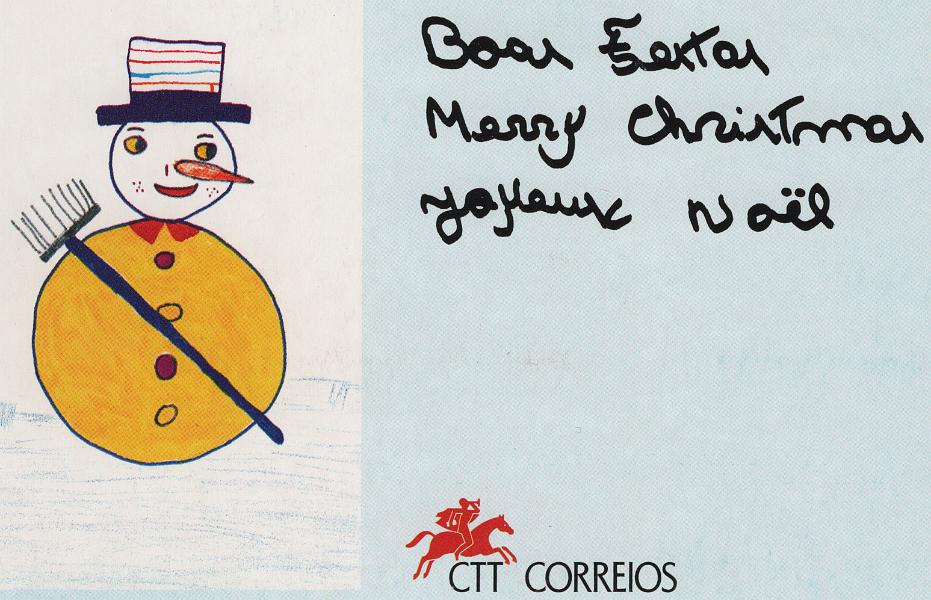 Boas Festas
Merry Christmas
Joyeux Noël
CTT CORREIOS